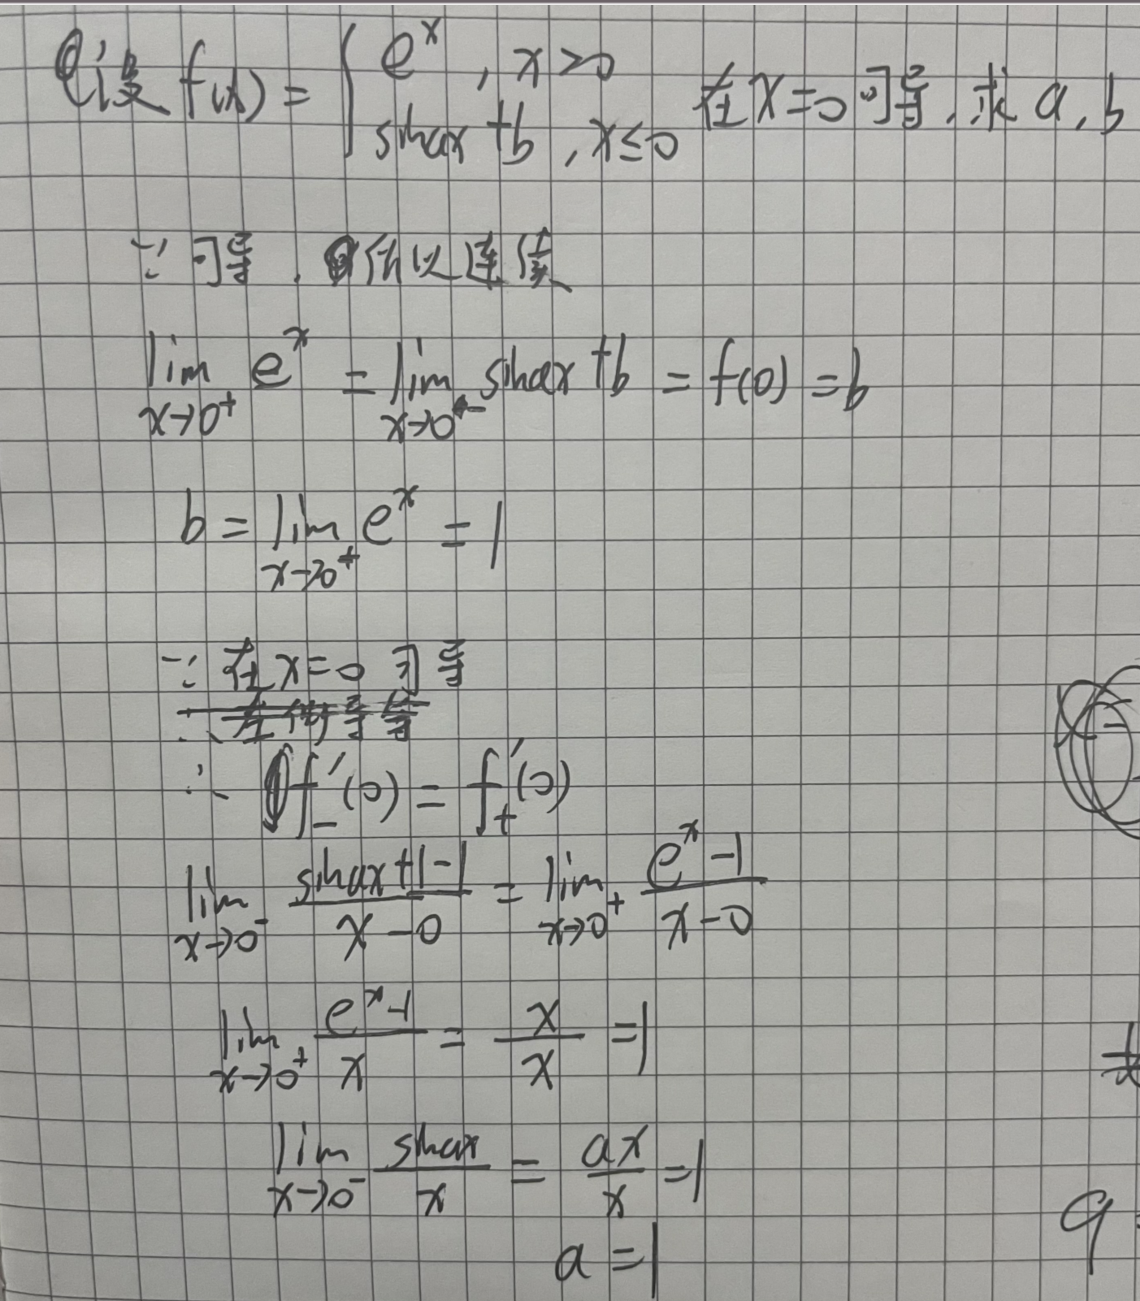 设 f(x) = { e^x , x>0
sinax +b , x≤0 在x=0可导, 求 a, b
∵ 可导. 所以连续
lim x→0⁺ e^x = lim x→0⁻ sinax +b = f(0) = b
b = lim x→0⁺ e^x = 1
∵ 在x=0 可导
∴ f₋′(0) = f₊′(0)
lim x→0⁻ (sinax+1-1)/(x-0) = lim x→0⁺ (e^x-1)/(x-0)
lim x→0⁺ (e^x-1)/x = x/x =1
lim x→0⁻ sinax/x = ax/x =1
a =1
9